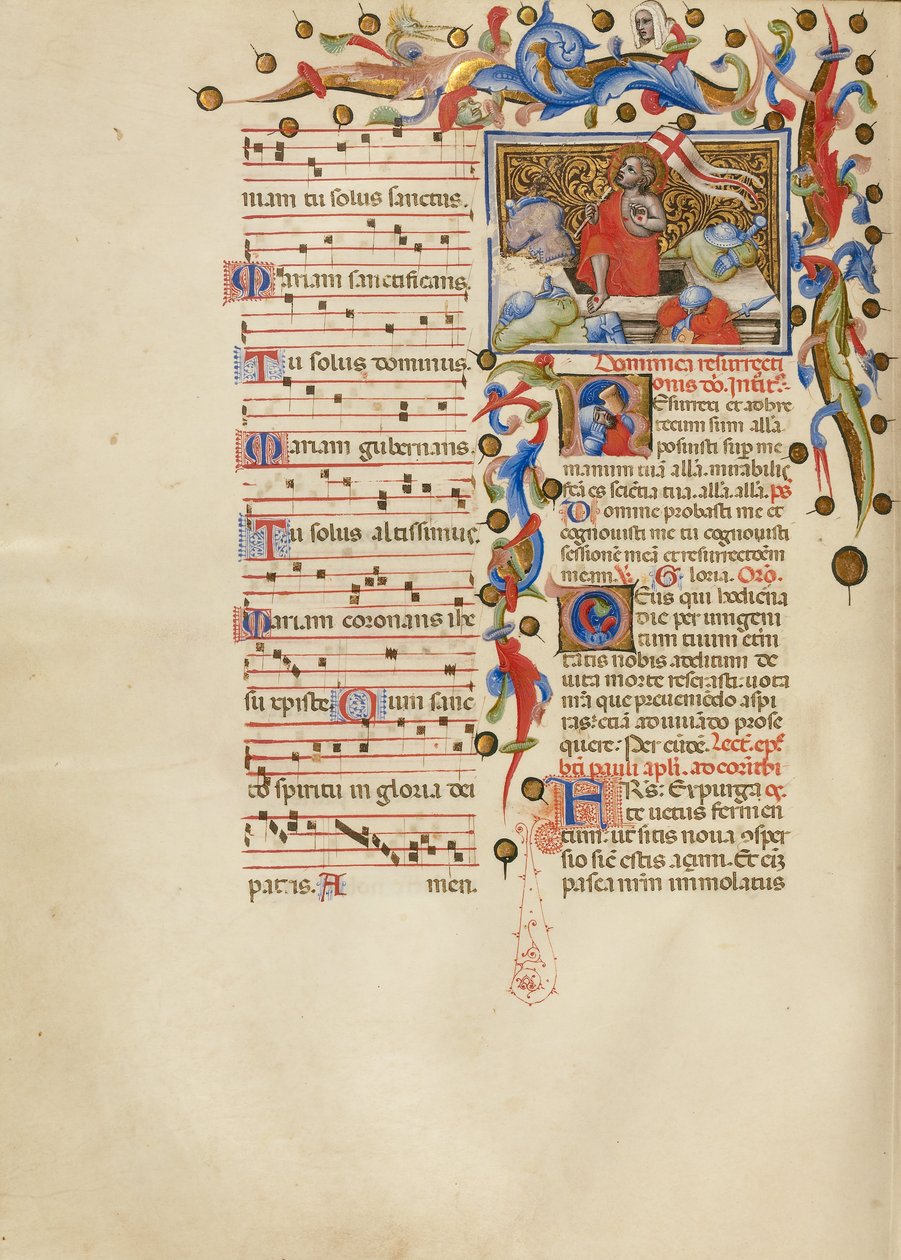 niam tu solus sanctus.
Mariam sanctificans.
Tu solus dominus.
Mariam gubernans.
Tu solus altissimus.
Mariam coronans ihe
su xpiste Cum sanc
to spiritu in gloria dei
patris. A men.
Dominica resurrecti
onis dō. Introit'.
REsurrexi et adhuc
tecum sum all'a.
posuisti sup me
manum tuā all'a. mirabilis
fc̄a es sciētia tua. all'a. all'a. ps̄
Domine probasti me et
cognouisti me tu cognouisti
sessionē meā et resurrectōem
meam. V. Gloria. Orō.
DEus qui hodierna
die per unigeni
tum tuum etr̄ni
tatis nobis aditum de
uicta morte reserasti: uota
nr̄a que preueniēdo aspi
ras: etiā adiuuādo prose
quere. Per eūdē. Lect. ep̄l'.
bt̄i pauli apl̄i. ad corinthi
FRS: Expurga os.
te uetus fermen
tum. ut sitis noua ꝯsper
sio sic̄ estis açimi. Et eiz
pasca nr̄m immolatus